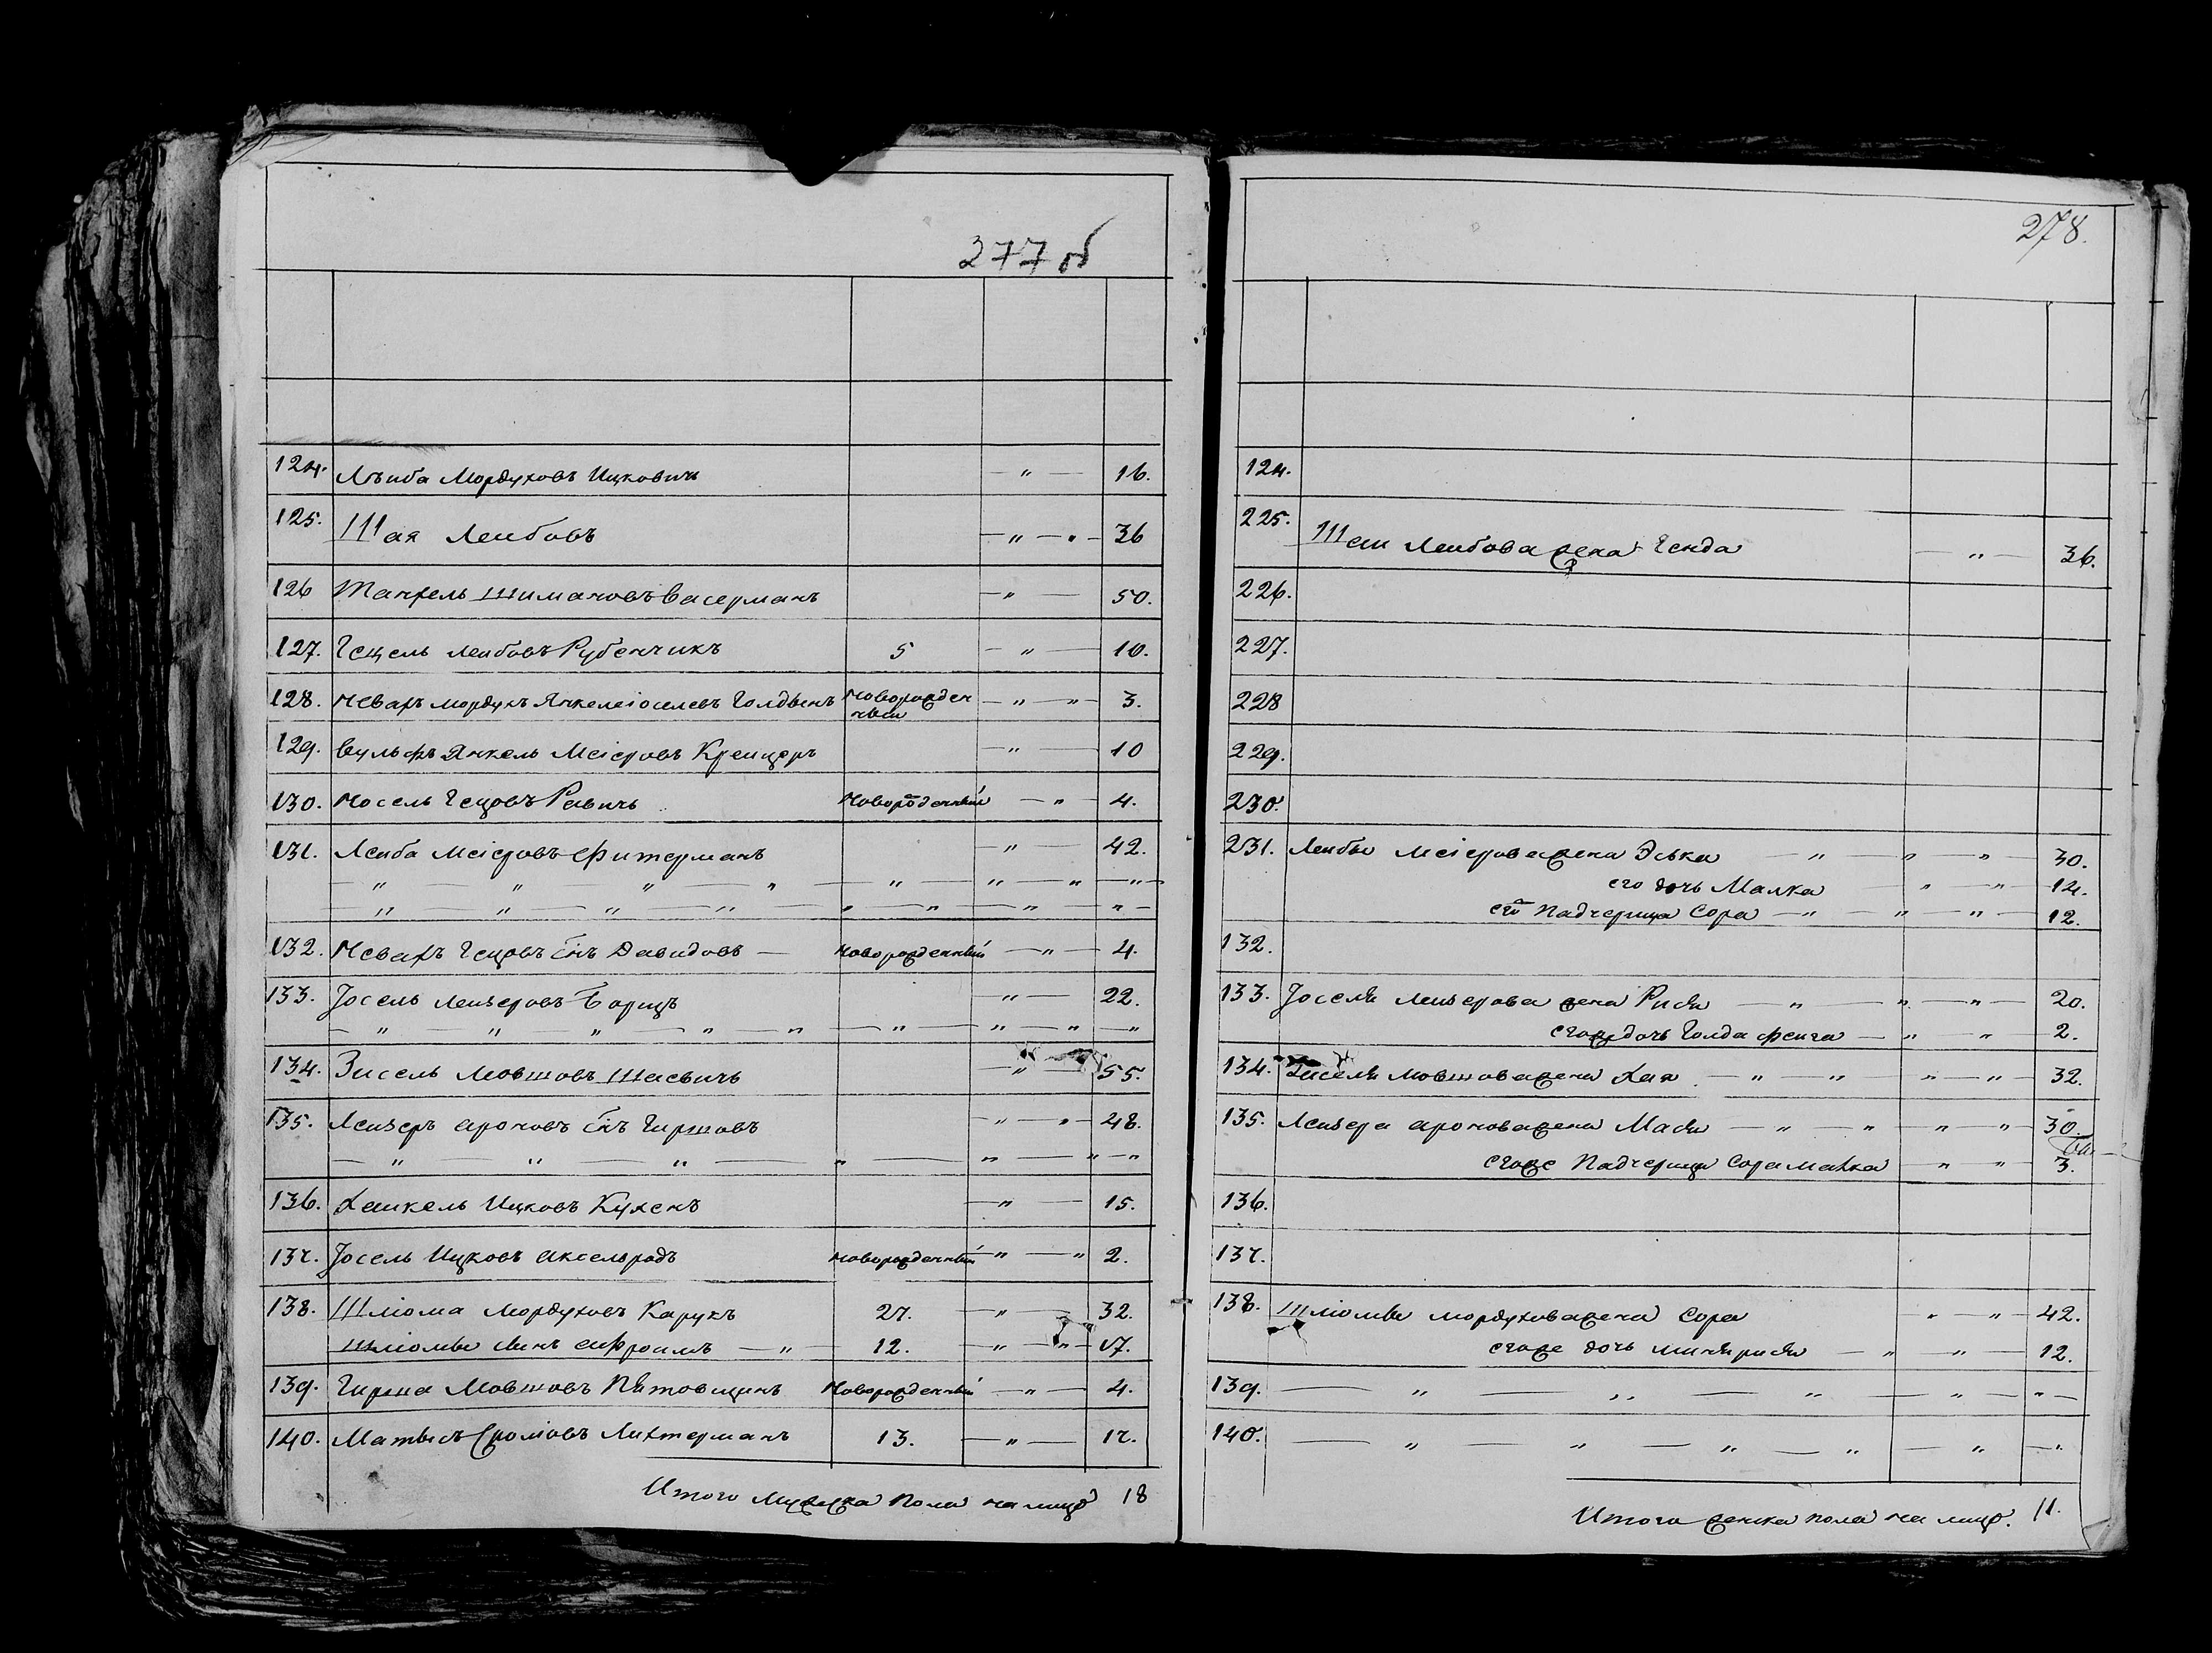 277 об
124. Лѣиба Мордуховъ Ицковичъ — " — 16.
125. Шая Леибовъ — " — " — 36
126 Шимановъ Васерманъ — " — 50.
127. Гецель Леибовъ Рубенчикъ 5 — " — 10.
128. Невахъ Мордухъ Янкелеіоселевъ новорожденный — " — " — 3.
129. Вульфъ Янкель Меіеровъ Креицеръ — " — 10
130. Носель Гецовъ Равичъ новорожденный — " — 4.
131. Леиба Меіеровъ Фитерманъ — " — 42.
— " — " — " — " — " — " — " — " —
— " — " — " — " — " — " — " — " —
132. Невахъ Гецовъ Давидовъ — новорожденный — " — 4.
133. Іосель Леизеровъ Борицъ " — 22.
— " — " — " — " — " — " — " — " — "
134. Зисель Мовшовъ Шаевичъ — " — 55.
135. Леизеръ Ароновъ Гиршовъ — " — " — 48.
— " — " — " — " — " — " — "
136. Хаикель Ицковъ Кухенъ — " — 15.
137. Іосель Ицковъ Аксельродъ новорожденный — " — " 2.
138. Шліома Мордуховъ Карукъ 27. — " — 32.
Шліомы сынъ Афроимъ — " — 12. — " — " — 17.
139. Гирша Мовшовъ Пятовщинъ Новорожденный — " — 4.
140. Матысъ Сроліовъ Лихтерманъ 13. — " — 17.
Итого мужеска пола на лицо 18
278.
124.
225. Шаи Леибова жена Генда — " — 36.
226.
227.
228
229.
230.
231. Леибы Меіерова жена Эська — " — " — " — 30.
его дочь Малка — " — " — 14.
его Падчерица Сора — " — " — " — 12.
132.
133. Іоселя Леизерова жена Рися — " — " — " — 20.
егожъ дочь Голда Феига — " — " — 2.
134. Зиселя Мовшова жена Хая " — " " — " — 32.
135. Леизера Аронова жена Мася — " — " — " — " — 30.
егоже Падчерица Сора Малка " — " — 3.
136.
137.
138. Шліомы Мордухова жена Сора " — " — 42.
егоже дочь — " — " — 12.
139. — " — " — " — " — " —
140. — " — " — " — " — " — "
Итого женска пола на лицо. 11.